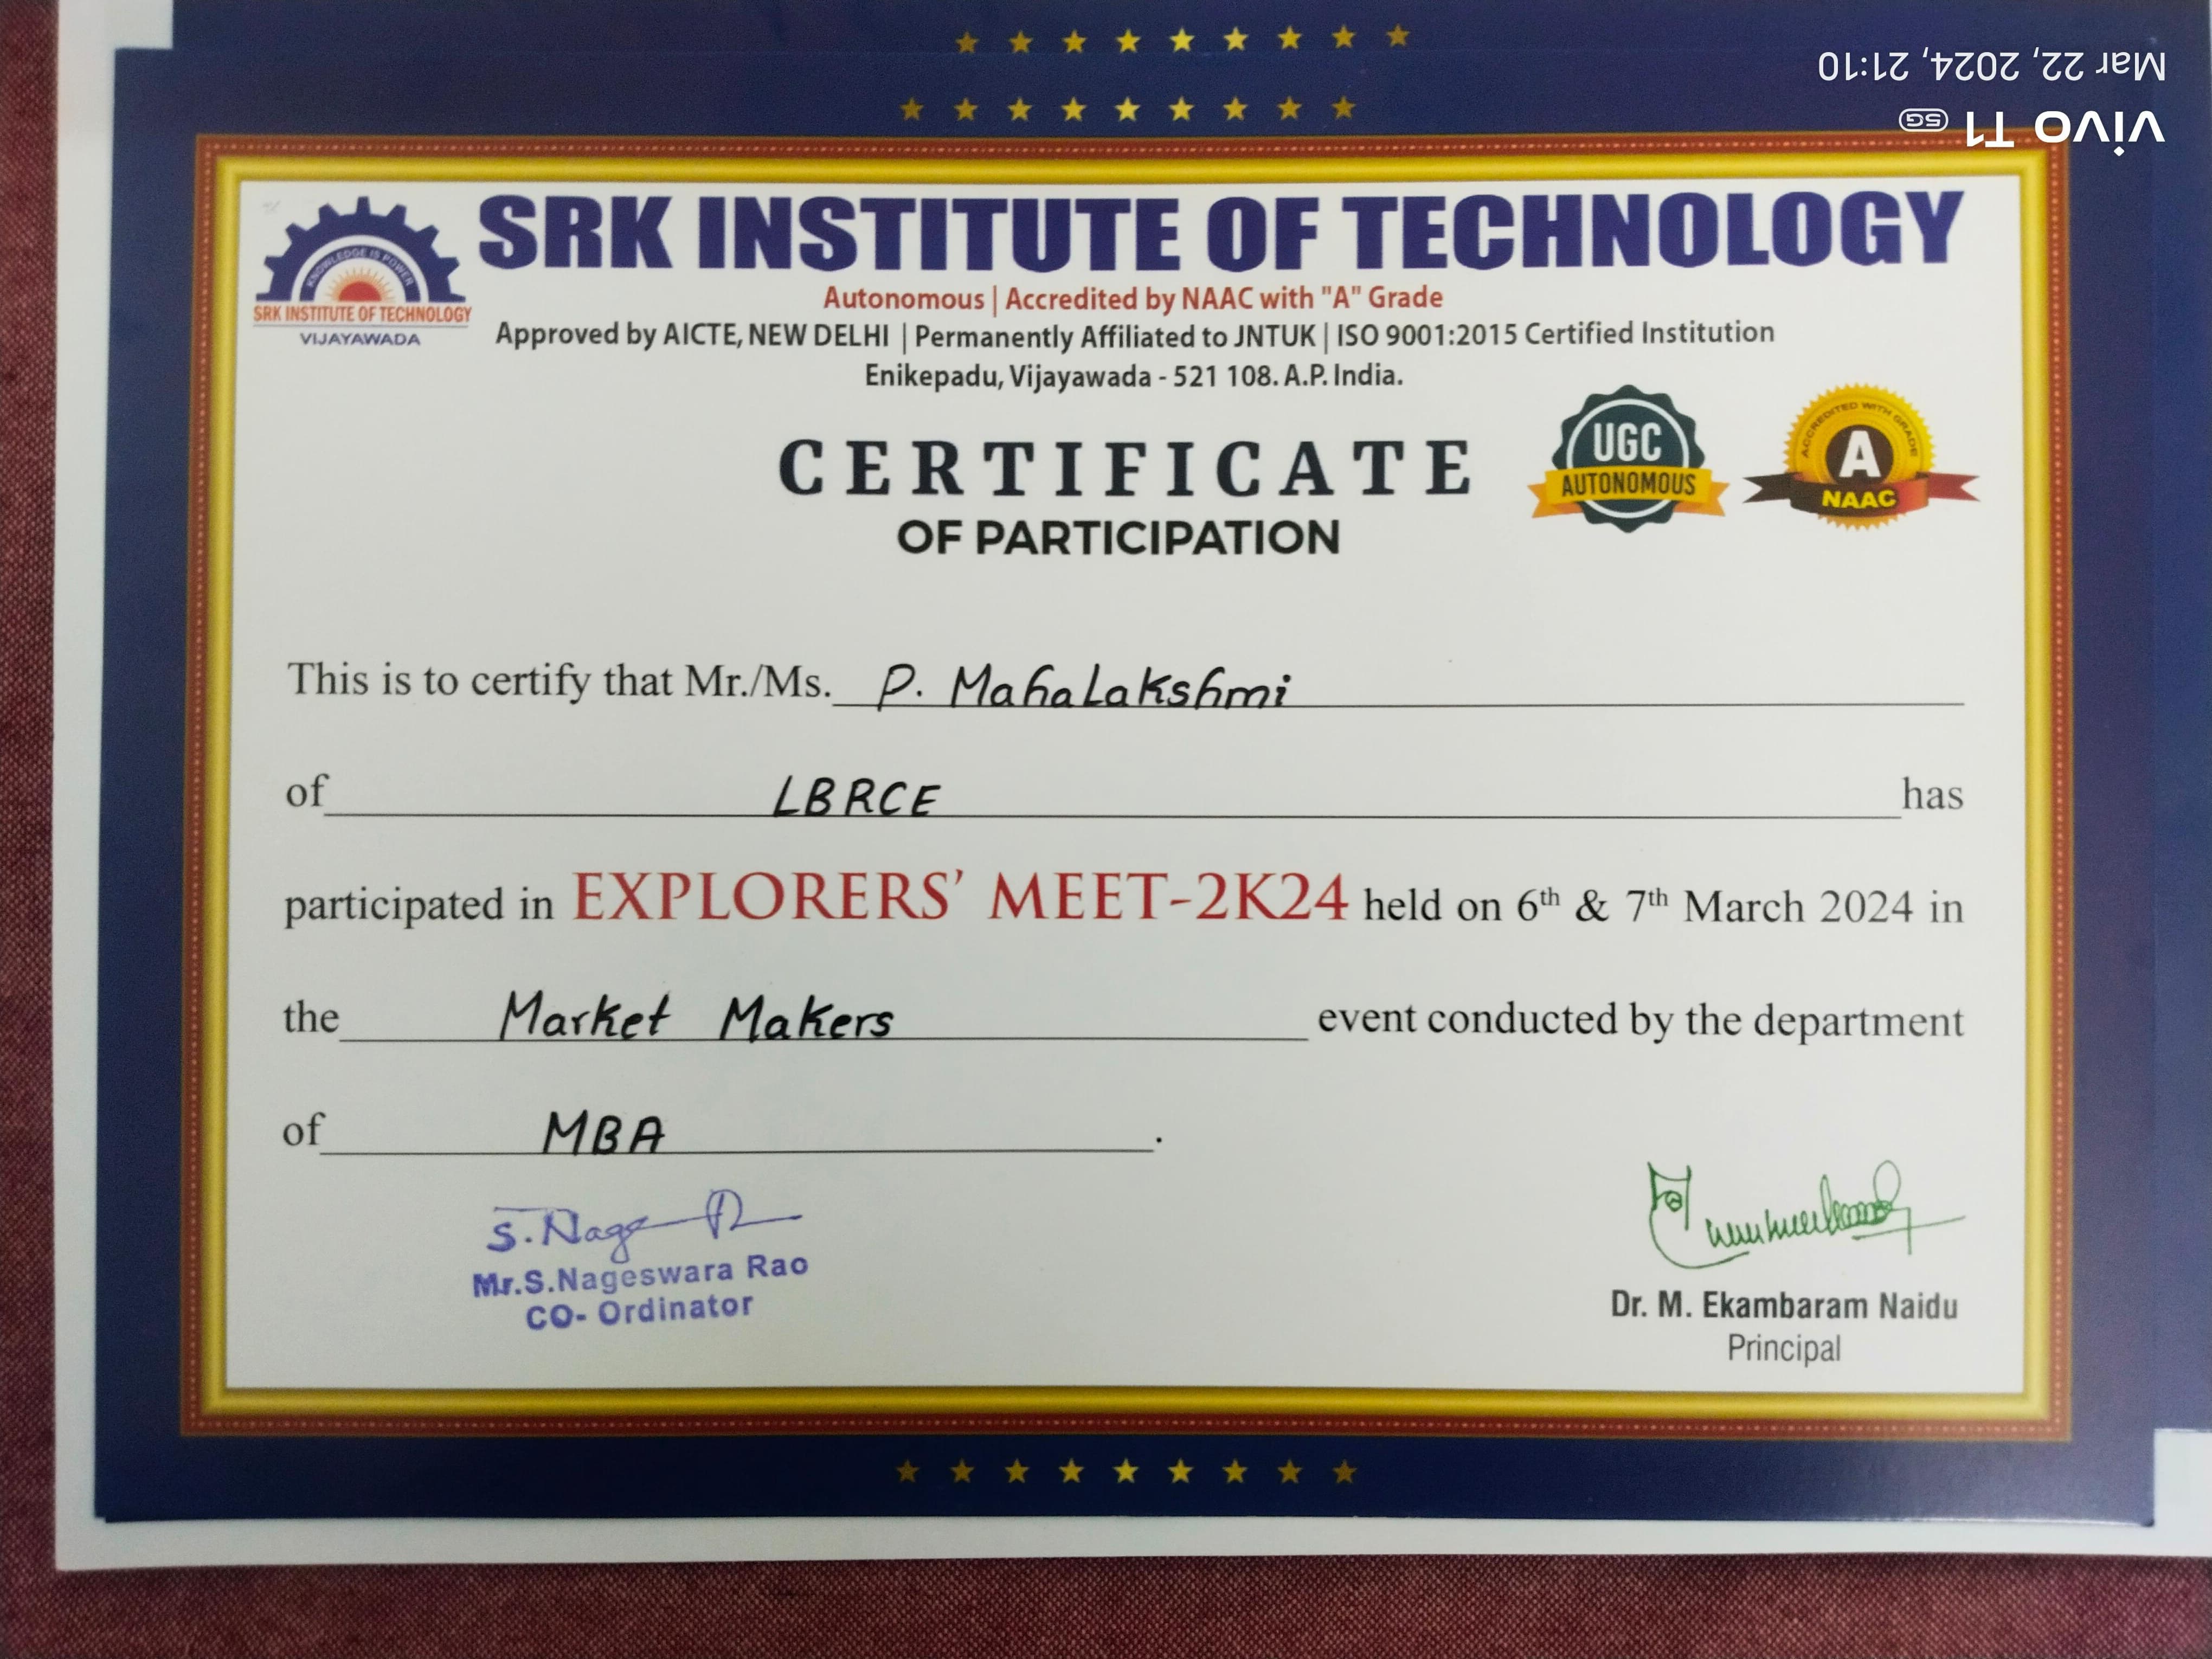 Mar 22, 2024, 21:10
vivo T1 5G
SRK INSTITUTE OF TECHNOLOGY
KNOWLEDGE IS POWER
SRK INSTITUTE OF TECHNOLOGY
VIJAYAWADA
Autonomous | Accredited by NAAC with "A" Grade
Approved by AICTE, NEW DELHI | Permanently Affiliated to JNTUK | ISO 9001:2015 Certified Institution
Enikepadu, Vijayawada - 521 108. A.P. India.
CERTIFICATE
OF PARTICIPATION
UGC
AUTONOMOUS
ACCREDITED WITH GRADE
A
NAAC
This is to certify that Mr./Ms. P. MahaLakshmi
of LBRCE has
participated in EXPLORERS' MEET-2K24 held on 6th & 7th March 2024 in
the Market Makers event conducted by the department
of MBA.
S. Nage
Mr.S.Nageswara Rao
CO- Ordinator
Dr. M. Ekambaram Naidu
Principal